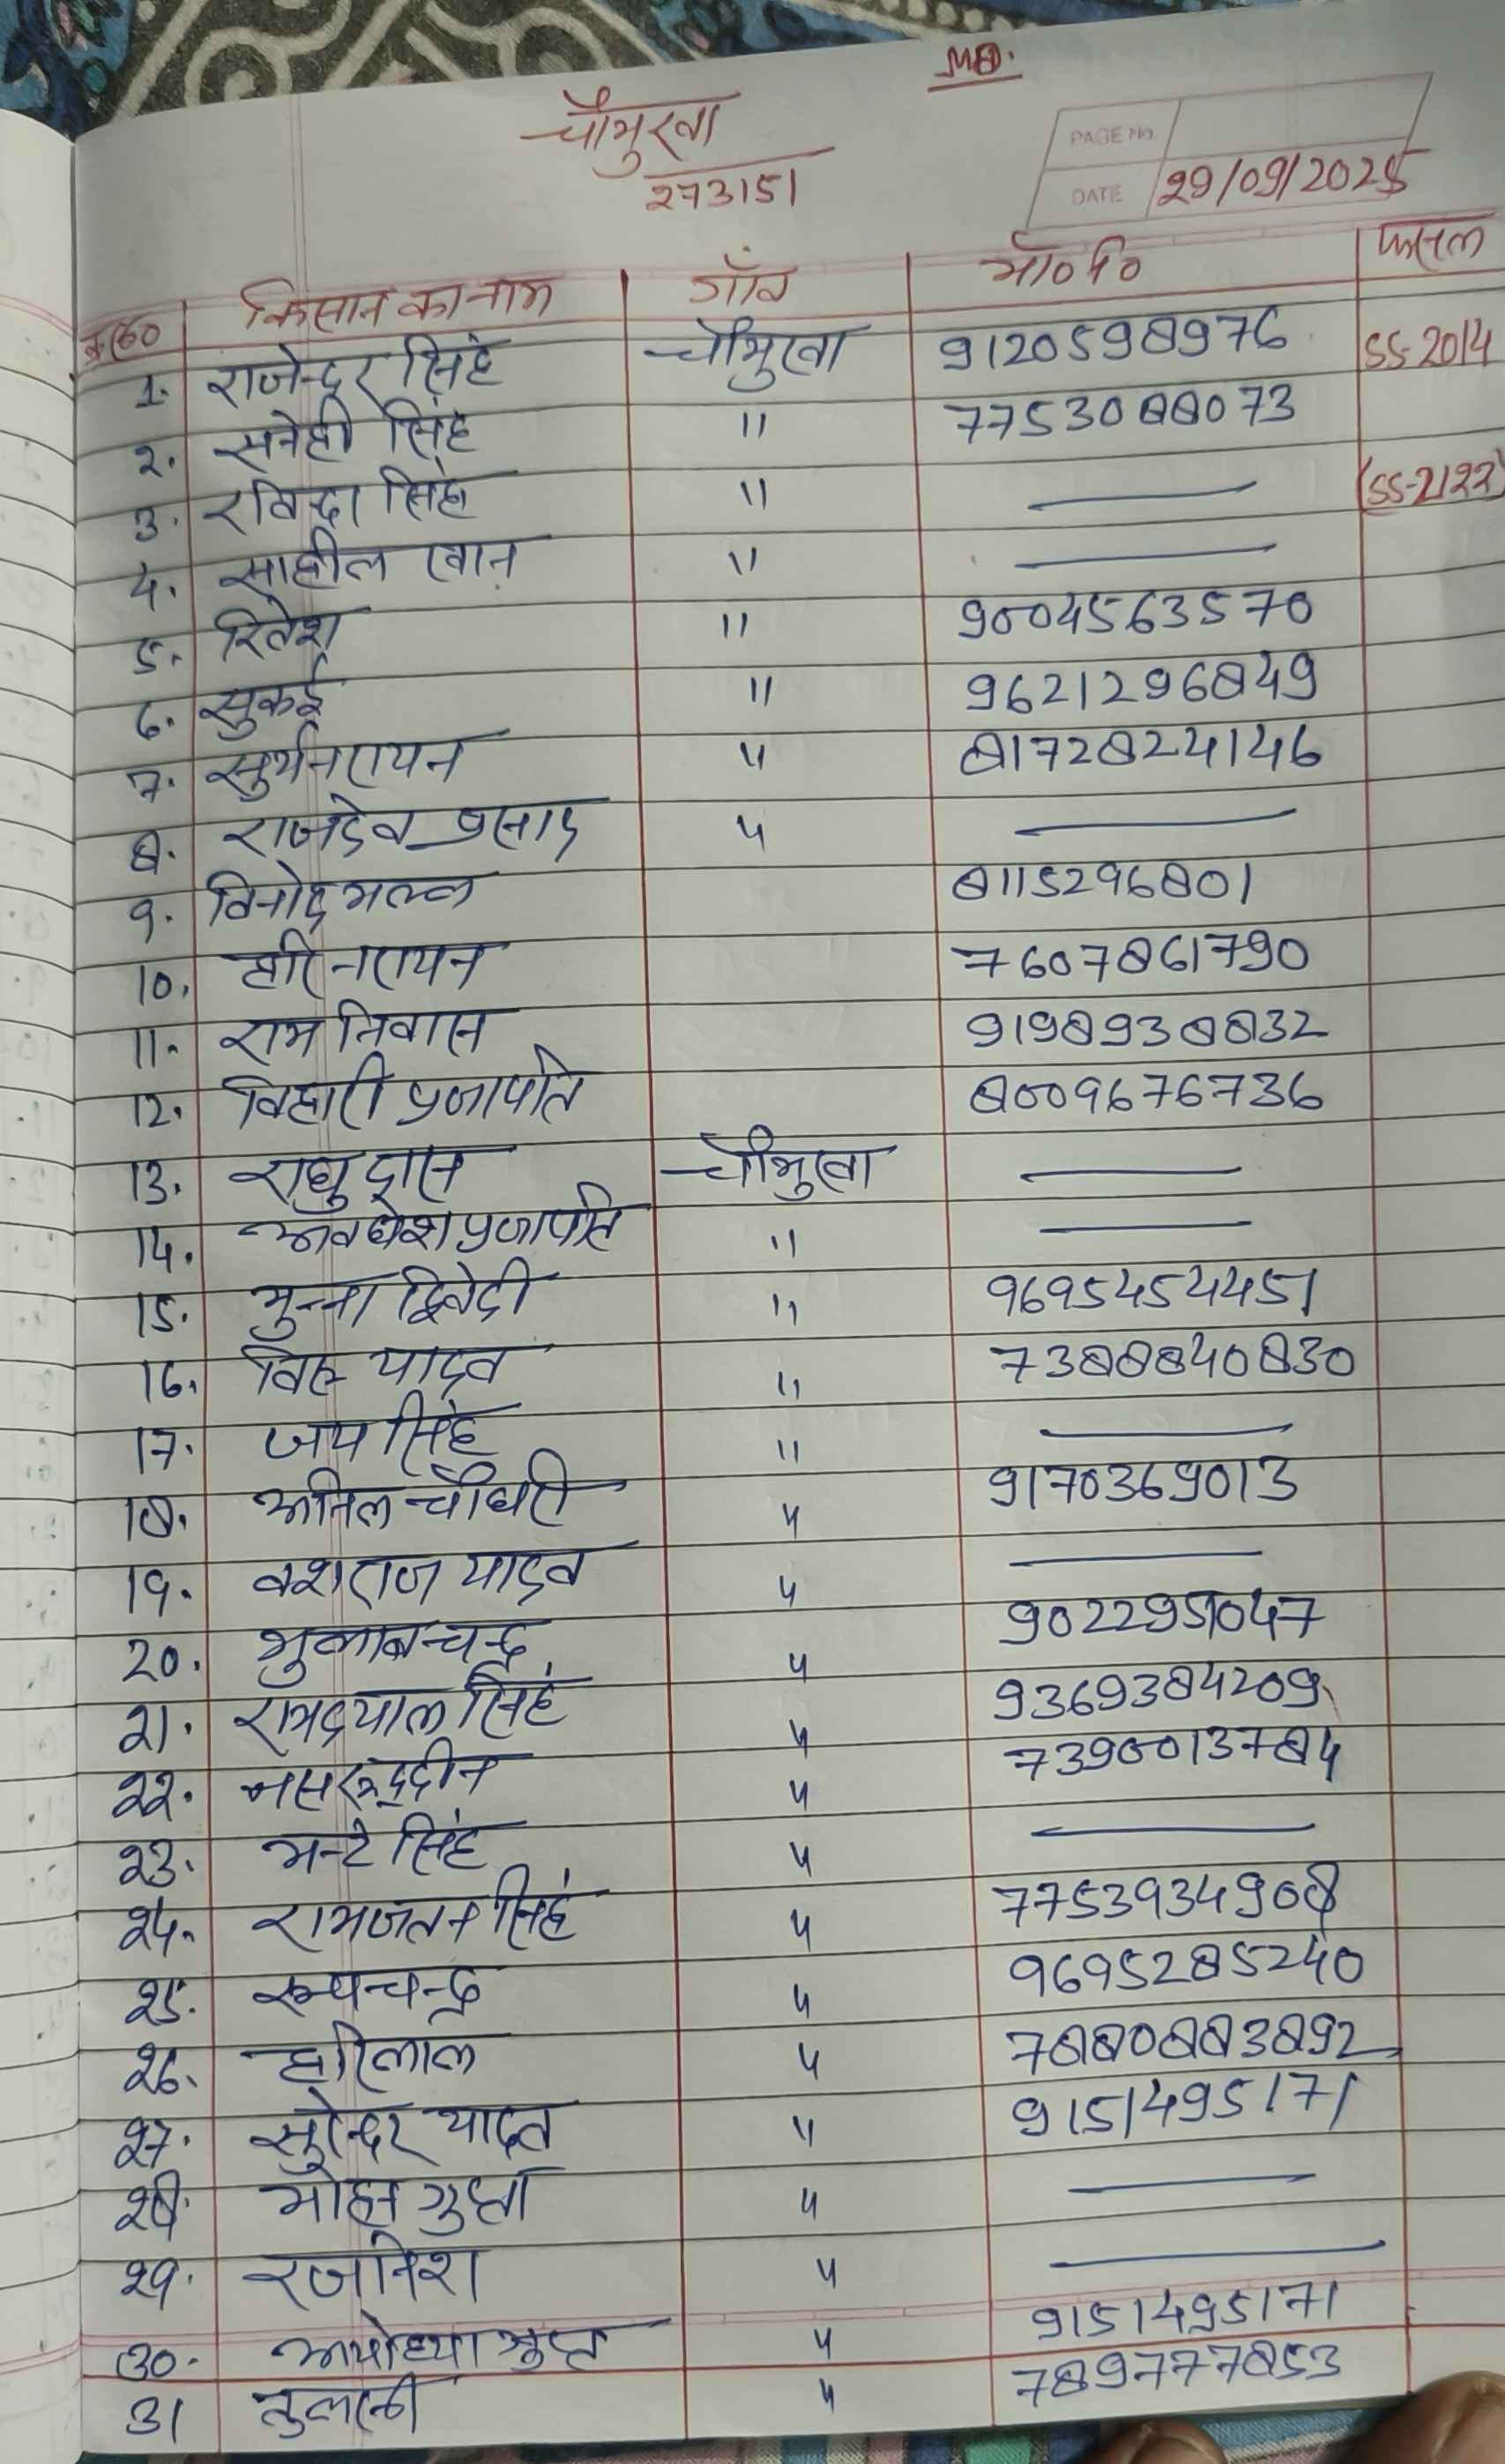 चौमुखा
273151
PAGE No.
DATE 29/09/2025
क्र०सं० किसान का नाम गाँव मो०नं० फसल
1. राजेन्दर सिंह चौमुखा 9120598976 SS-2014
2. सनेही सिंह " 7753088073
3. रविन्द्रा सिंह " — (SS-2122)
4. साहील खान " —
5. रितेश " 9004563570
6. सुकई " 9621296849
7. सुर्यनरायन " 81728224146
8. राजदेव प्रसाद " —
9. विनोद मल्ल 8115296801
10. हरि नरायन 7607861790
11. राम निवास 9198938832
12. विहारी प्रजापति 8009676736
13. राघु दास चौमुखा —
14. अवधेश प्रजापति " —
15. मुन्ना द्विवेदी " 9695454451
16. यादव " 7388840830
17. जय सिंह " —
18. अनिल चौधरी " 9170369013
19. वंशराज यादव " —
20. गुलाबचन्द्र " 9022951047
21. रामदयाल सिंह " 9369384209
22. नसरुद्दीन " 7390013784
23. मन्टे सिंह " —
24. रामजतन सिंह " 7753934908
25. रुपचन्द्र " 9695285240
26. हरिलाल " 7880883892
27. सुरेन्दर यादव " 9151495171
28. मोहन गुप्ता " —
29. रजनिश " —
30. अयोध्या गुप्त " 9151495171
31 तुलसी " 7897777853